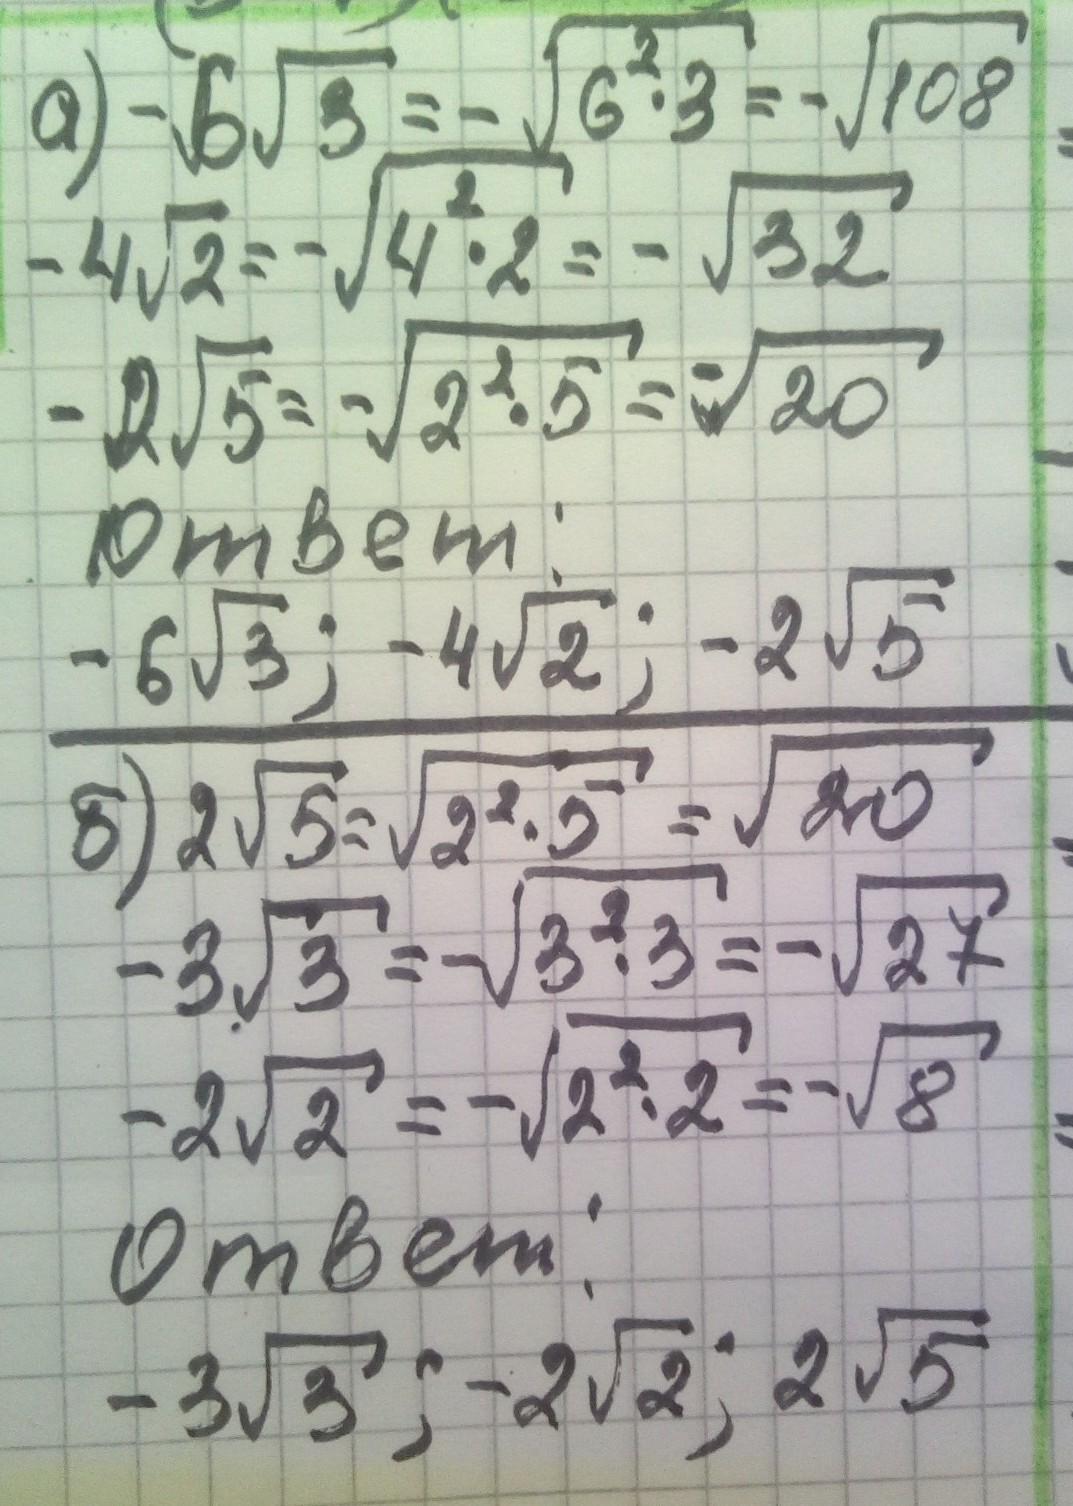 а) -6√3 = -√6²·3 = -√108
-4√2 = -√4²·2 = -√32
-2√5 = -√2²·5 = -√20
Ответ:
-6√3; -4√2; -2√5
б) 2√5 = √2²·5 = √20
-3√3 = -√3²·3 = -√27
-2√2 = -√2²·2 = -√8
Ответ:
-3√3; -2√2; 2√5